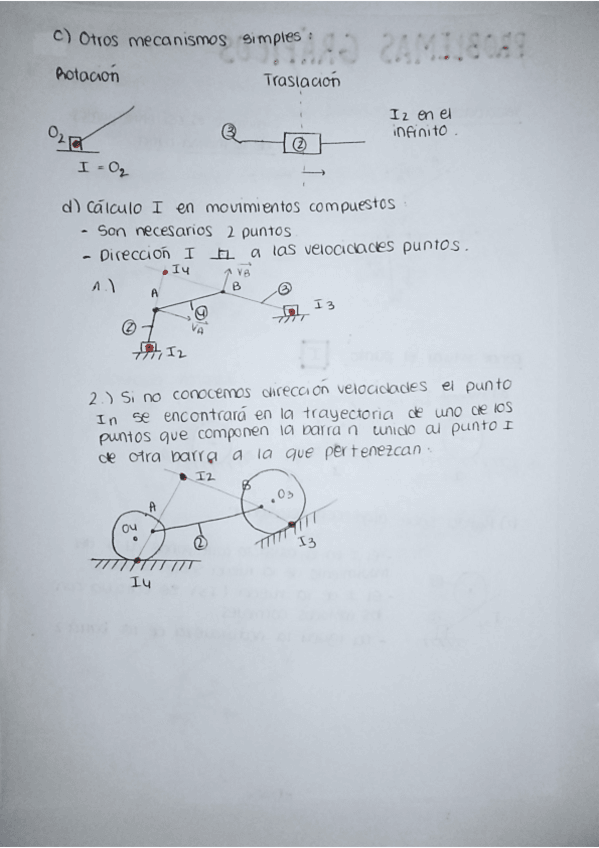 c) Otros mecanismos simples:
Rotación
Traslación
O2
I = O2
3
2
I2 en el
infinito.
d) Cálculo I en movimientos compuestos:
- Son necesarios 2 puntos
- Dirección I ⊥ a las velocidades puntos.
1.)
I4
VB
A
B
3
I3
4
VA
2
I2
2.) Si no conocemos dirección velocidades el punto
In se encontrará en la trayectoria de uno de los
puntos que componen la barra n unido al punto I
de otra barra a la que pertenezcan.
I2
A
B
O3
O4
2
I3
I4